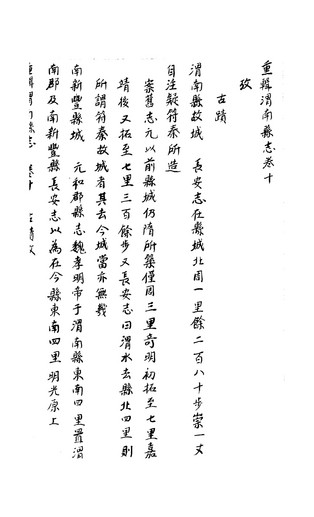 重輯渭南縣志卷十
攷
古蹟
渭南縣故城 長安志在縣城北周一里餘二百八十步崇一丈
自注疑符秦所造
案舊志元以前縣城仍隋所築僅周三里奇明初拓至七里嘉
靖後又拓至七里三百餘步又長安志曰渭水去縣北四里則
所謂符秦故城者其去今城當亦無幾
南新豐縣城 元和郡縣志魏孝明帝于渭南縣東南四里置渭
南郡及南新豐縣長安志以為在今縣東南四里明光原上
重輯渭南縣志 卷十 古蹟攷